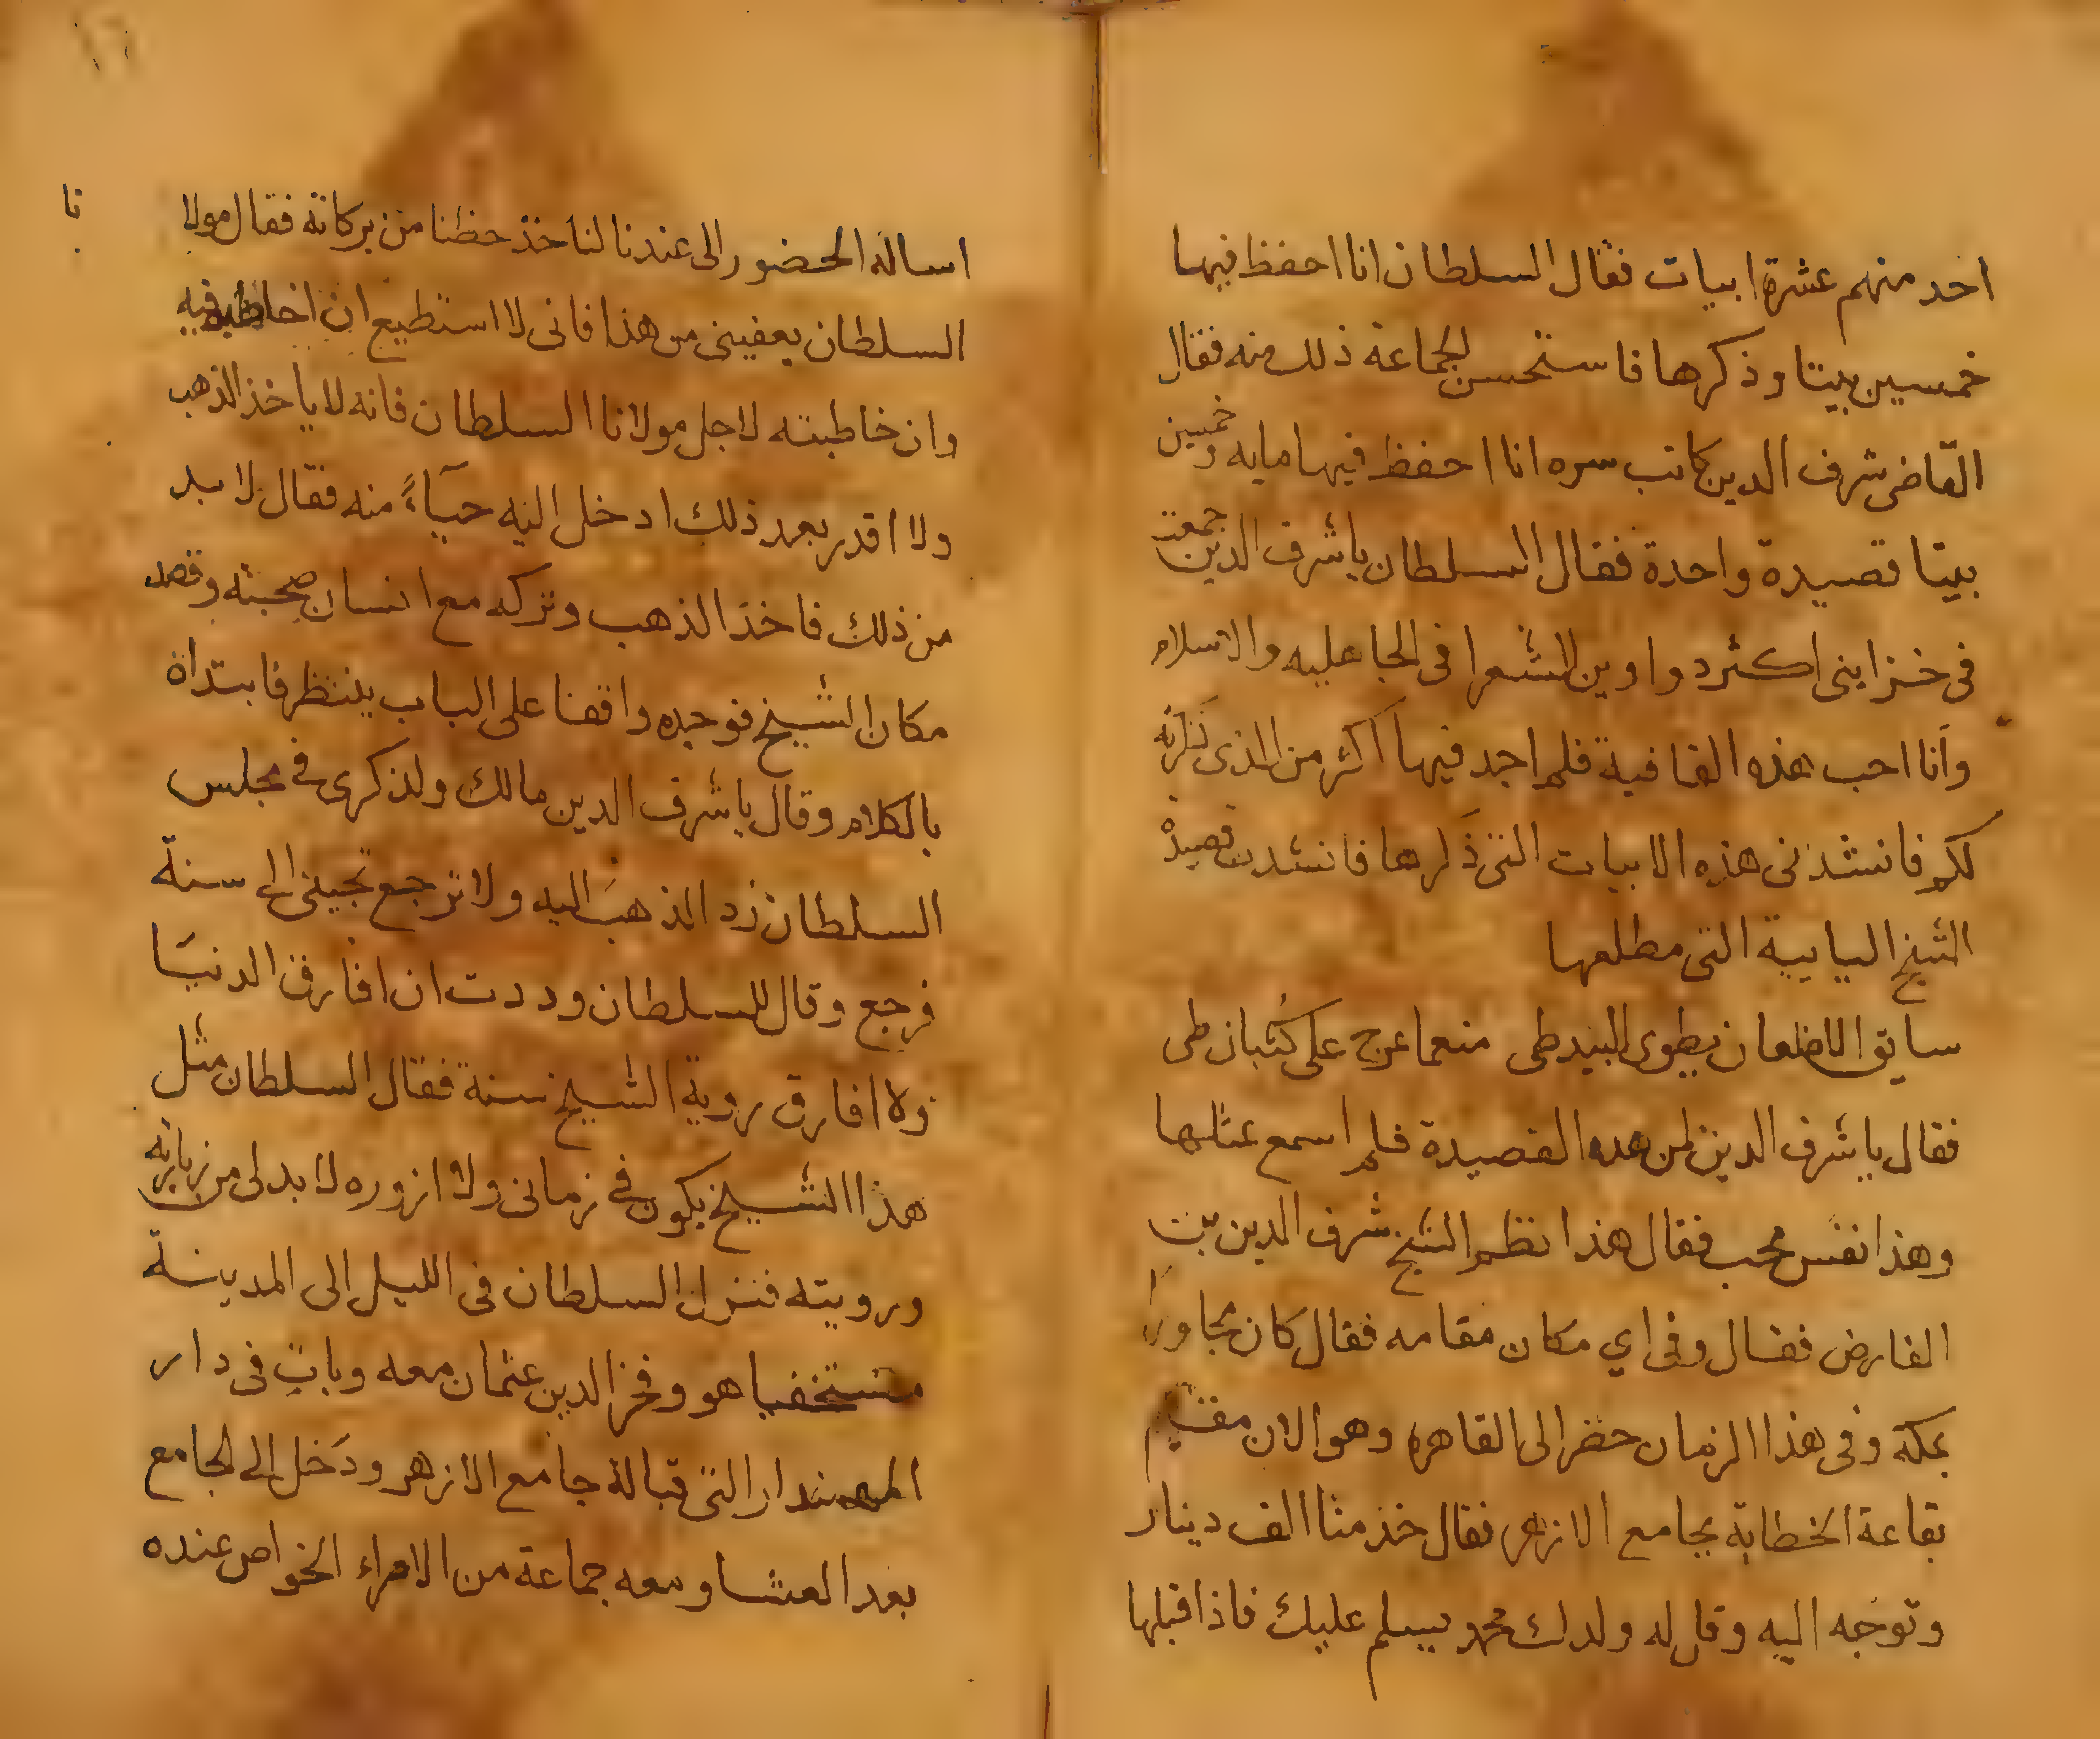 احد منهم عشرة ابيات فقال السلطان انا احفظ فيها
خمسين بيتا وذكرها فاستحسن الجماعة ذلك منه فقال
القاضى شرف الدين كاتب سره انا احفظ فيها مايه وخمسين
بيتا قصيدة واحدة فقال السلطان ياشرف الدين جمعت
فى خزاينى اكثر دواوين الشعرا فى الجاهليه والاسلام
وانا احب هذه القافية فلم اجد فيها اكثر من الذى ذكرته
لكم فانشدنى هذه الابيات التى ذكرها فانشدت قصيدة
الشيخ اليايية التى مطلعها
سايق الاظعان يطوى البيد طى منعما عرج على كُثبان طى
فقال ياشرف الدين لمن هده القصيدة فلم اسمع بمثلها
وهذا نفس محب فقال هذا نظم الشيخ شرف الدين بن
الفارض فقال وفى اي مكان مقامه فقال كان مجاورًا
بمكة وفى هذا الزمان حضر الى القاهره وهو الان مقيم
بقاعة الخطابة بجامع الازهر فقال خذ منا الف دينار
وتوجه اليه وقل له ولدك محمد يسلم عليك فاذا قبلها
اساله الحضور الى عندنا لناخذ حظنا من بركاته فقال مولا
نا
السلطان يعفينى من هذا فانى لا استطيع ان اخاطبه فيه
وان خاطبته لاجل مولانا السلطان فانه لا ياخذ الذهب
ولا اقدر بعد ذلك ادخل اليه حيآءً منه فقال لا بد
من ذلك فاخذ الذهب وتركه مع انسان صحبته وقصد
مكان الشيخ فوجده واقفا على الباب ينتظر فابتداه
بالكلام وقال ياشرف الدين مالك ولذكرى فى مجلس
السلطان رد الذهب اليه ولا ترجع تجينى الى سنة
فرجع وقال للسلطان وددت ان افارق الدنيا
ولا افارق روية الشيخ سنة فقال السلطان مثل
هذا الشيخ يكون فى زمانى ولا ازوره لا بد لى من زيارته
ورويته فنزل السلطان فى الليل الى المدينة
مستخفيا هو وفخر الدين عثمان معه وبات فى دار
المهمندار التى قبالة جامع الازهر ودخل الى الجامع
بعد العشا ومعه جماعة من الامراء الخواص عنده